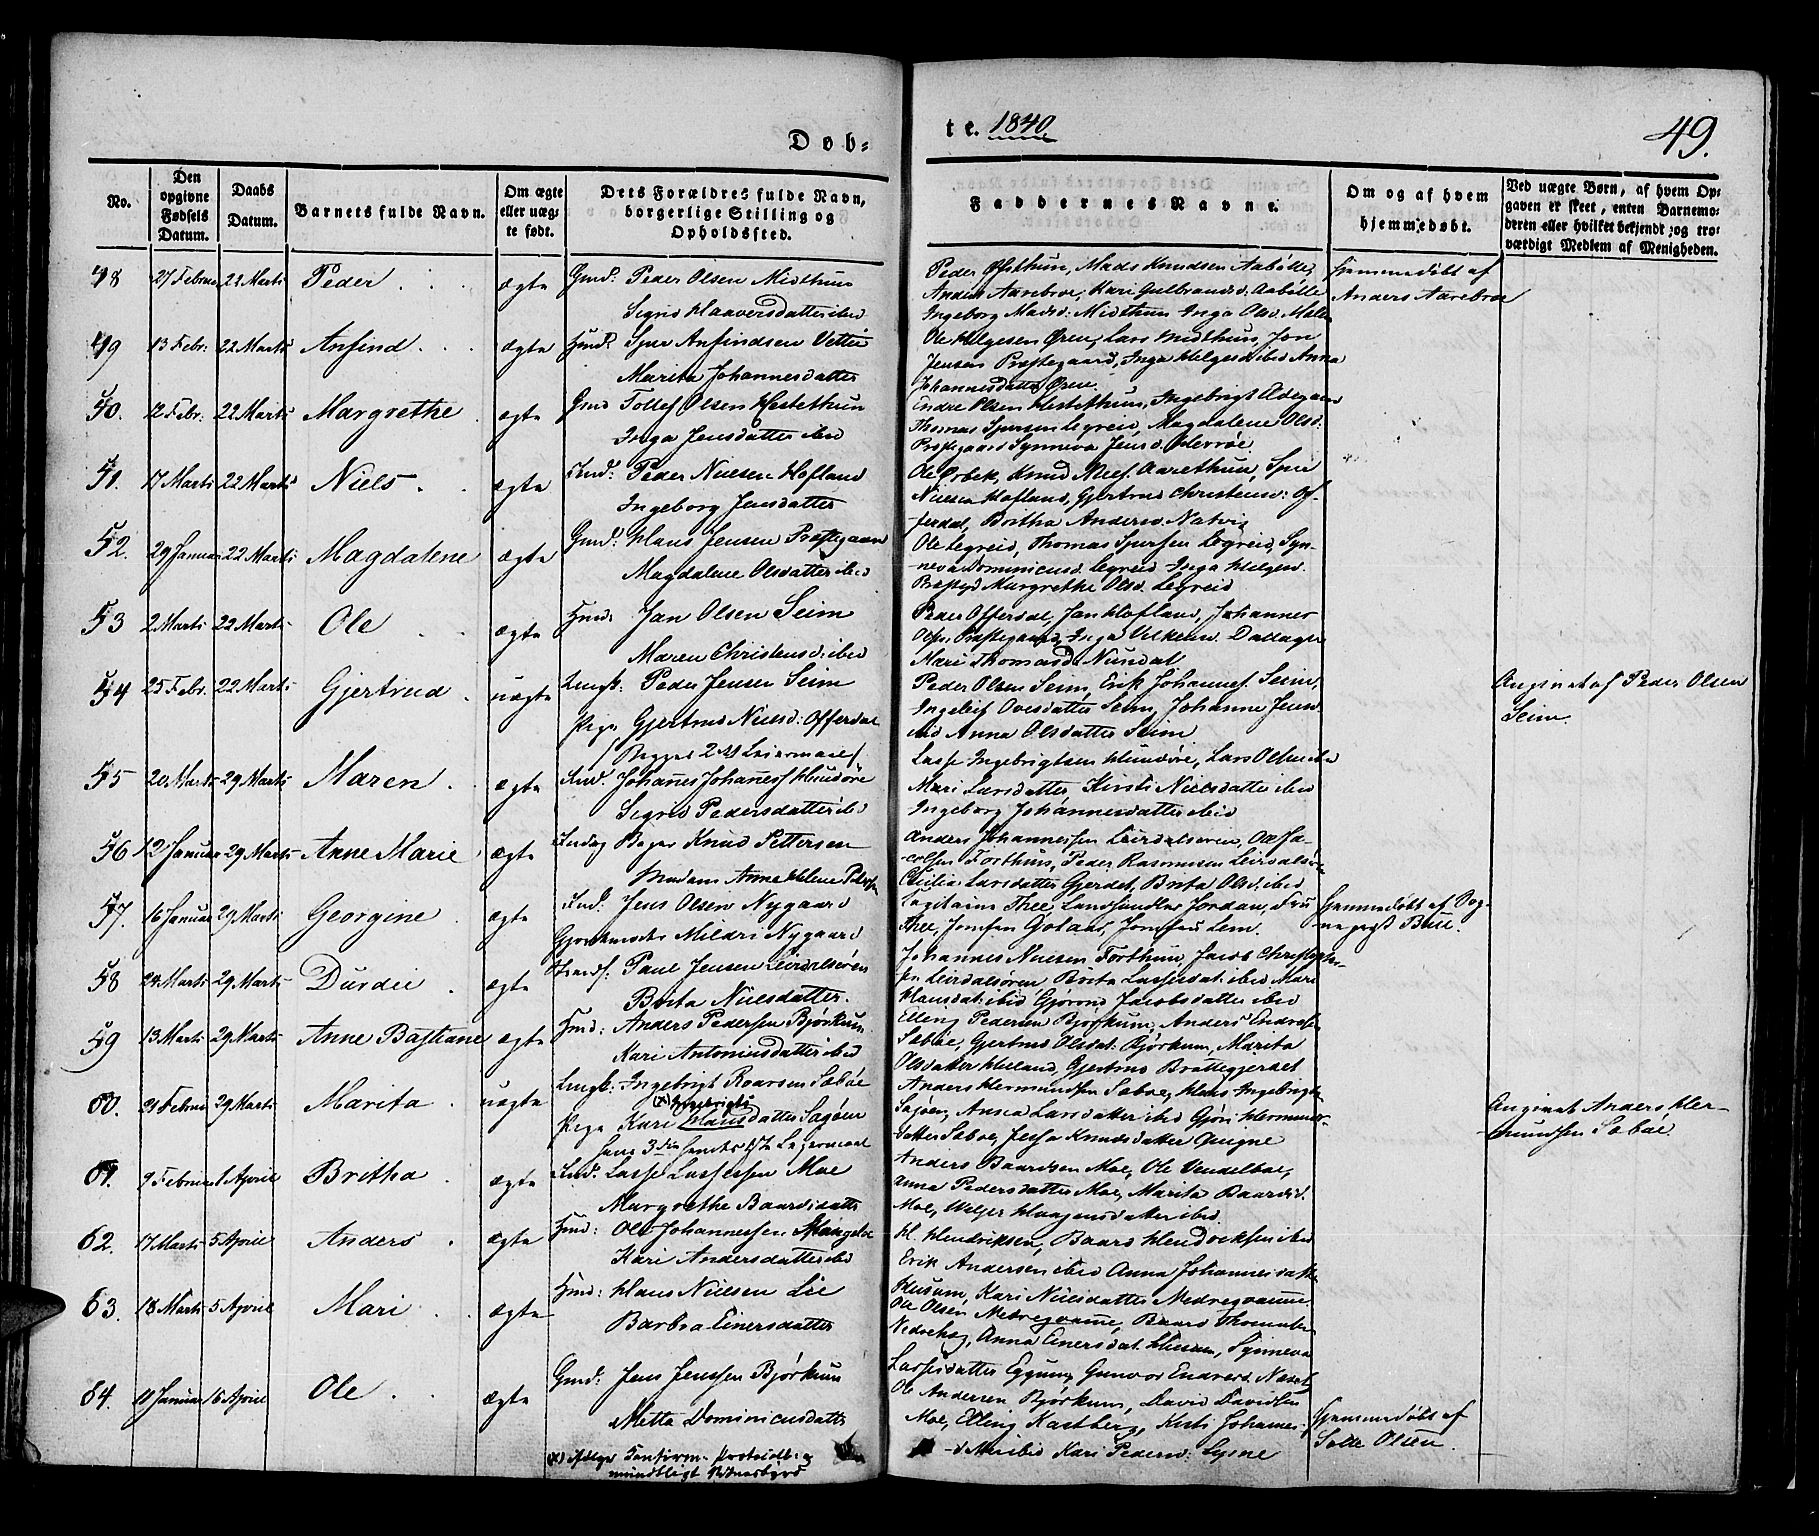 Døb-
te. 1840.
49.
No.
Den opgivne Fødsels Datum.
Daabs Datum.
Barnets fulde Navn.
Om ægte eller uægte født.
Dets Forældres fulde Navn, borgerlige Stilling og Opholdssted.
Faddernes Navne.
Om og af hvem hjemmedøbt.
Ved uægte Børn, af hvem Opgaven er skeet, enten Barnemoderen eller hvilket bekjendt og troværdigt Medlem af Menigheden.
48 27 Februar 22 Marts Peder ægte Gmd. Peder Olsen Midthun
Sigrid Haaversdatter ibid
Peder Østhun, Mads Knudsen Aabølle,
Anders Aarebroe, Kari Gulbrandsd. Aabølle
Ingeborg Madsd. Midthun Inga Olsd.
Hjemmedøbt af
Anders Aarebroe
49 13 Febr: 22 Marts Anfind ægte Huusd. Sjur Anfindsen Vettie
Marita Johannesdatter
Ole Helgesen Øren, Lars Midthun, Jon
Jensen Præstegaard, Inga Helgesd. ibid Anna
Johannesdatter Øren.
50. 12 Febr. 22 Marts Margrethe ægte Gmd Tollef Olsen Hestethun
Inga Jensdatter ibid
Endre Olsen Hestethun, Ingebrigt
Thomas Sjursen Legreid, Magdalene Olsd.
Præstegaard Synneva Jensd. Herrøe
51. 17 Marts 22 Marts Niels ægte Huusd: Peder Nielsen Hofland
Ingeborg Jensdatter
Ole Ørbek, Knud Aarethun, Sjur
Nielsen Hofland, Gjertrud Christensd: Of-
ferdal, Britha Andersd. Natvig
52. 29 Januar 22 Marts Magdalene ægte Gmd: Hans Jensen Præstegaard
Magdalene Olsdatter ibid
Ole Legreid, Thomas Sjursen Legreid, Syn-
neva Dominicusd. Legreid Inga Helgesd.
Præstgd Margrethe Olsd. Legreid
53 2 Marts 22 Marts Ole ægte Huusd: Jan Olsen Seim
Maren Christensd: ibid
Peder Offerdal, Jan Hofland, Johannes
Olsen Præstegaard, Inga
Mari Thomasd. Nundal
54 25 Febr. 22 Marts Gjertrud uægte Ungk: Peder Jensen Seim
Pige Gjertrud Nielsd: Offerdal
Begges 2det Leiermaal
Peder Olsen Seim, Erik Johannes. Seim,
Ingeleif Ovesdatter Seim, Johanne Jensd.
ibid Anna Olsdatter Seim
Angivet af Peder Olsen
Seim.
55 20 Marts 29 Marts Maren ægte Johanes Johanes. Hundøre
Sigrid Pedersdatter ibid
Lasse Ingebrigtsen Hundøre, Lars Olsen ibid
Mari Larsdatter, Kirsti Nielsdatter ibid
Ingeborg Johannesdatter ibid
56 12 Januar 29 Marts Anne Marie ægte Bager Knud Pettersen
Madam Anne Helene
Anders Johannessen Leirdalsøren, Ole Ja-
cobsen Forthun, Peder Rasmussen Leirdalsør
Cicilia Larsdatter Gjerdet, Brita Olsd: ibid
57. 16 Januar 29 Marts Georgine ægte Jens Olsen Nygaard
Mildri Nygaard
Capitaine Thee, Landhandler Jordan, Fru
Thee, Jomfru Jomfru Lem.
Hjemmedøbt af Sog-
nepræst
58 24 Marts 29 Marts Durdei ægte Paul Jensen Leirdalsøren
Brita Nielsdatter.
Johannes Nielsen Forthun, Jacob Christoph-
sen Leirdalsøren Brita Lassesdat: ibid Mari
Hansdat: ibid Gjørond Jacobsdatter ibid
59 13 Marts 29 Marts Anne Bastiane ægte Huusd: Anders Pedersen Bjørkum
Kari Antoniusdatter ibid
Elling Pedersen Bjørkum, Anders Endresen
Sæbøe, Gjertrud Olsdat: Bjørkum, Marita
Olsdatter Gjertrud Brattegjerdet
60. 21 Februar 29 Marts Marita uægte Ungk: Ingebrigt Roarsen Sæbøe
(x) Ingebrigts
Pige Kari Hansdatter Sagøen
hans 3die hendes 1ste Leiermaal
Anders Hermundsen Sæbøe, Hans Ingebrigts
Sagøen, Anna Larsdatter ibid Gjøri Hermunds-
datter Sæbøe, Knudsdatter
Angivet Anders Her-
mundsen Sæbøe
61. 9 Februar 1 Aprill Britha ægte Lasse Lassessen Moe
Margrethe Baardsdatter
Anders Baardsen Moe, Ole Vendelboe,
Anna Pedersdatter Moe, Marita Baardsd.
Moe, Haagensdatter ibid
62. 17 Marts 5 Aprill Anders ægte Huusd: Ole Johannessen
Kari Andersdatter ibid
H. Hendriksen, Baard Hendriksen ibid
Erik Andersen ibid Anna Johannesdatter
63. 18 Marts 5 Aprill Mari ægte Huusd: Hans Nielsen Lie
Barbra Einersdatter
Husum, Kari Nielsdatter Nedregvamme
Ole Olsen Nedregvamme, Baard Thomassen
Nedrehag, Anna Einersdat: Husum, Synneva
64. 11 Januar 16 Aprill Ole ægte Gmd: Jens Jenssen Bjørkum
Metta Dominicusdatter
Lassesdatter Eggum, Gunvor Endresd.
Ole Andersen Bjørkum, David Davidsen
Moe, Elling Kastberg, Kirsti Johannes-
datter ibid Kari Pedersd: Lysne
Hjemmedøbt af
Olsen
(x) ifølge Confirm. Protocoll og
mundtligt Vidnesbyrd